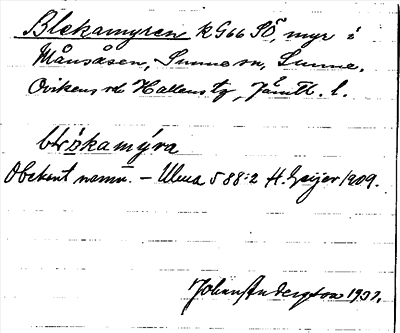 Blekamyren k G66 SÖ, myr i
Månsåsen, Sunne sn, Sunne,
Ovikens o Hallens tg, Jämtl. l.
blökamýra
Obekant namn. – Ulma 588:2 H. Geijer 1909.
Johan Andersson 1937.